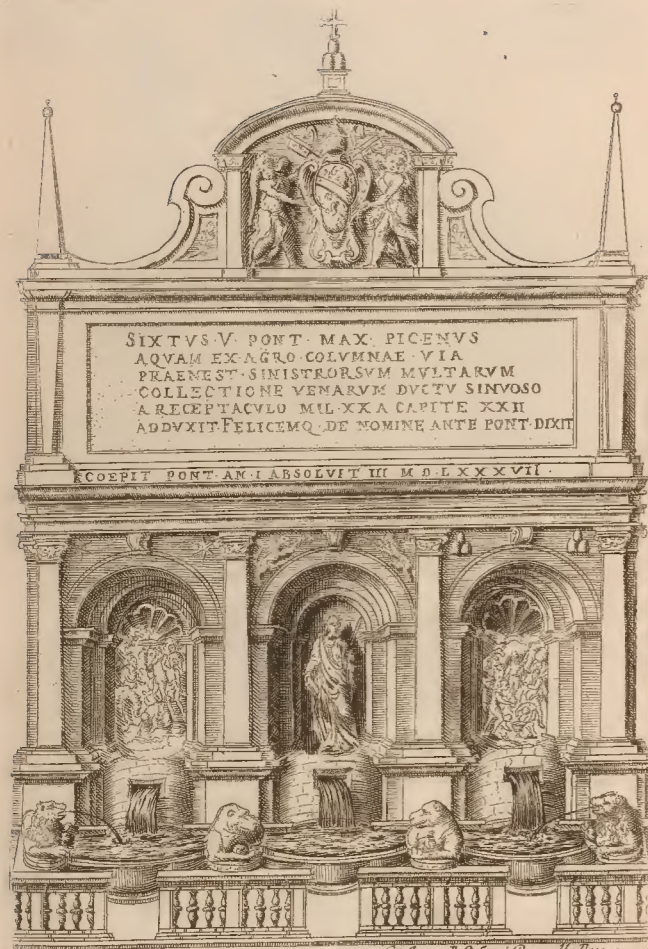 SIXTVS·V·PONT·MAX·PICENVS
AQVAM EX AGRO COLVMNAE·VIA
PRAENEST·SINISTRORSVM MVLTARVM
COLLECTIONE VENARVM DVCTV SINVOSO
A RECEPTACVLO MIL·XX A CAPITE XXII
ADDVXIT·FELICEMQ·DE NOMINE ANTE PONT·DIXIT
COEPIT PONT·AN·I ABSOLVIT III M·D·LXXXVII·